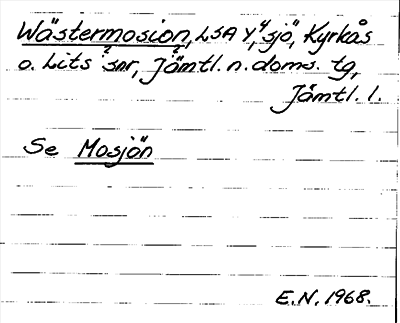 Wästermosion, LSA Y, "sjö", Kyrkås
o. Lits snr, Jämtl. n. doms. tg,
Jämtl. l.
Se Mosjön
E.N. 1968.